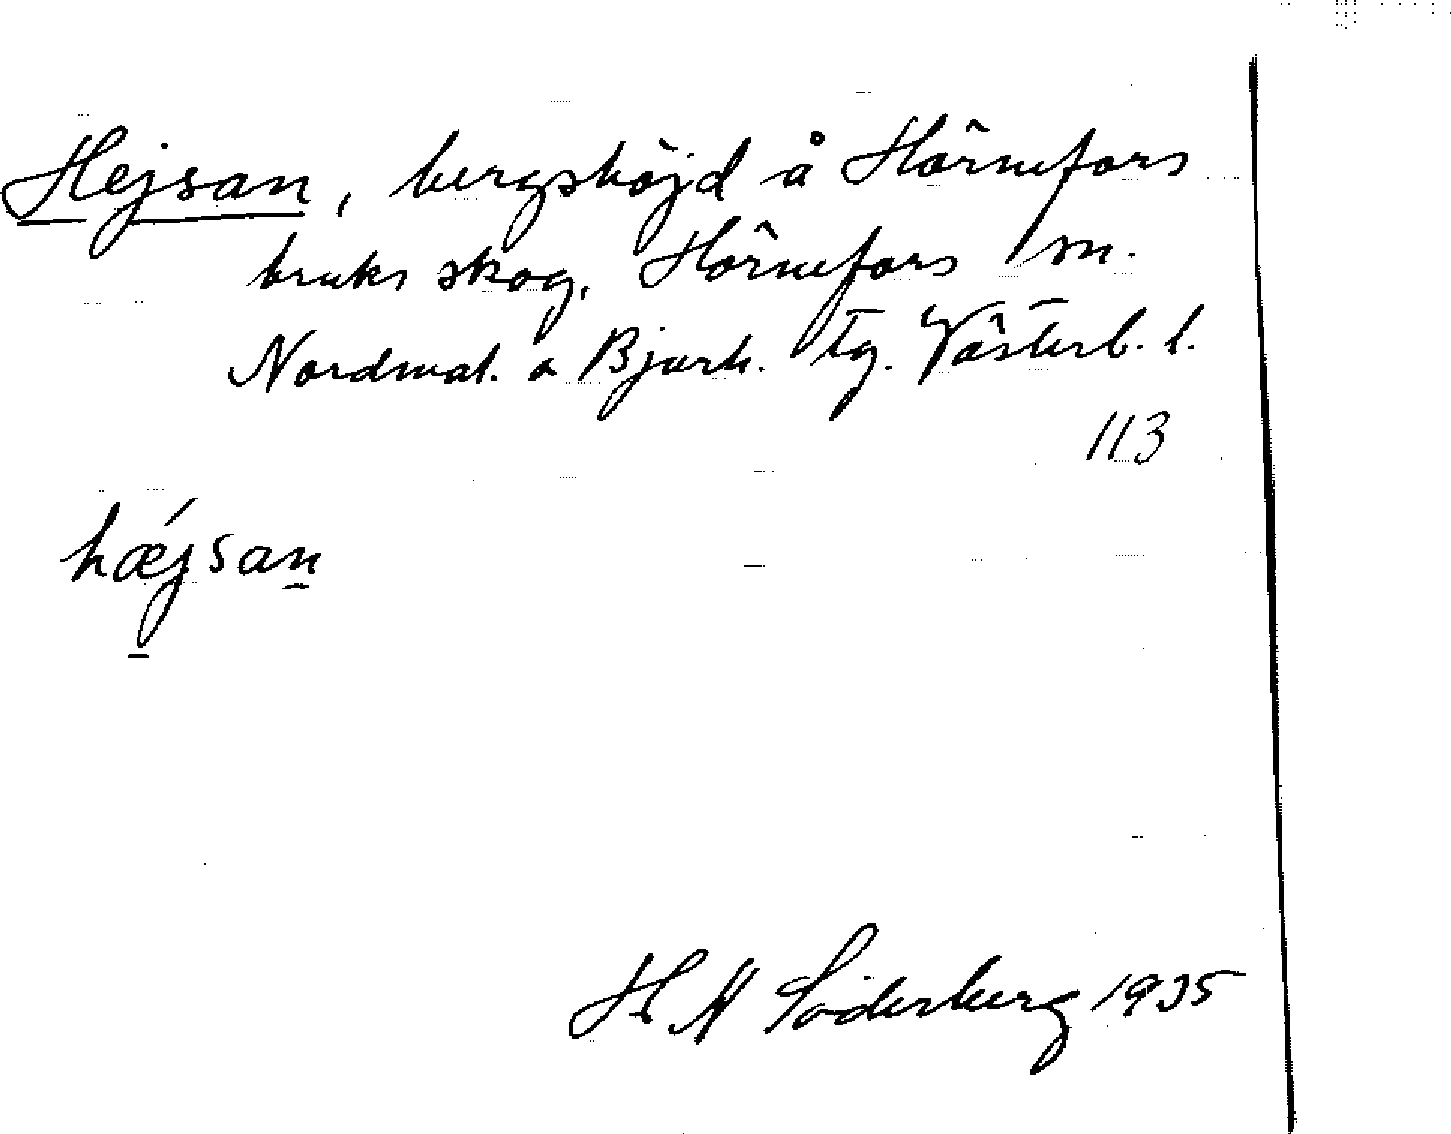 Hejsan, bergshöjd å Hörnefors
bruks skog, Hörnefors sn.
Nordmal. o Bjurh. tg. Västerb. l.
113
hǽjsan̲
H M Söderberg 1935